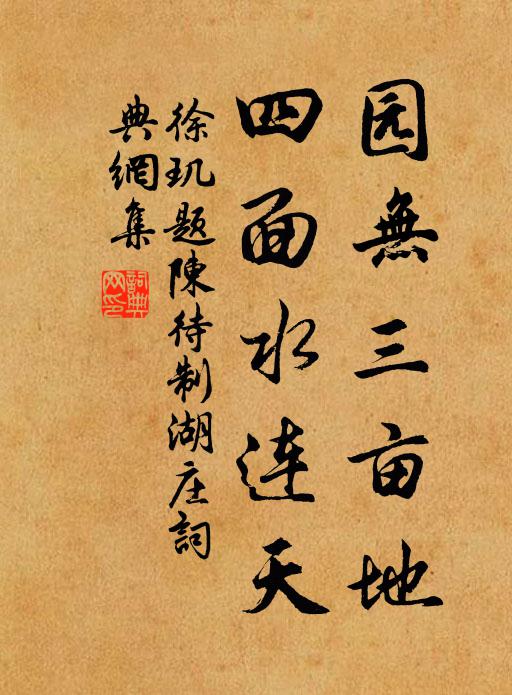 园無三亩地
四面水连天
徐玑題陳待制湖庄詞
典網集
詞典网印